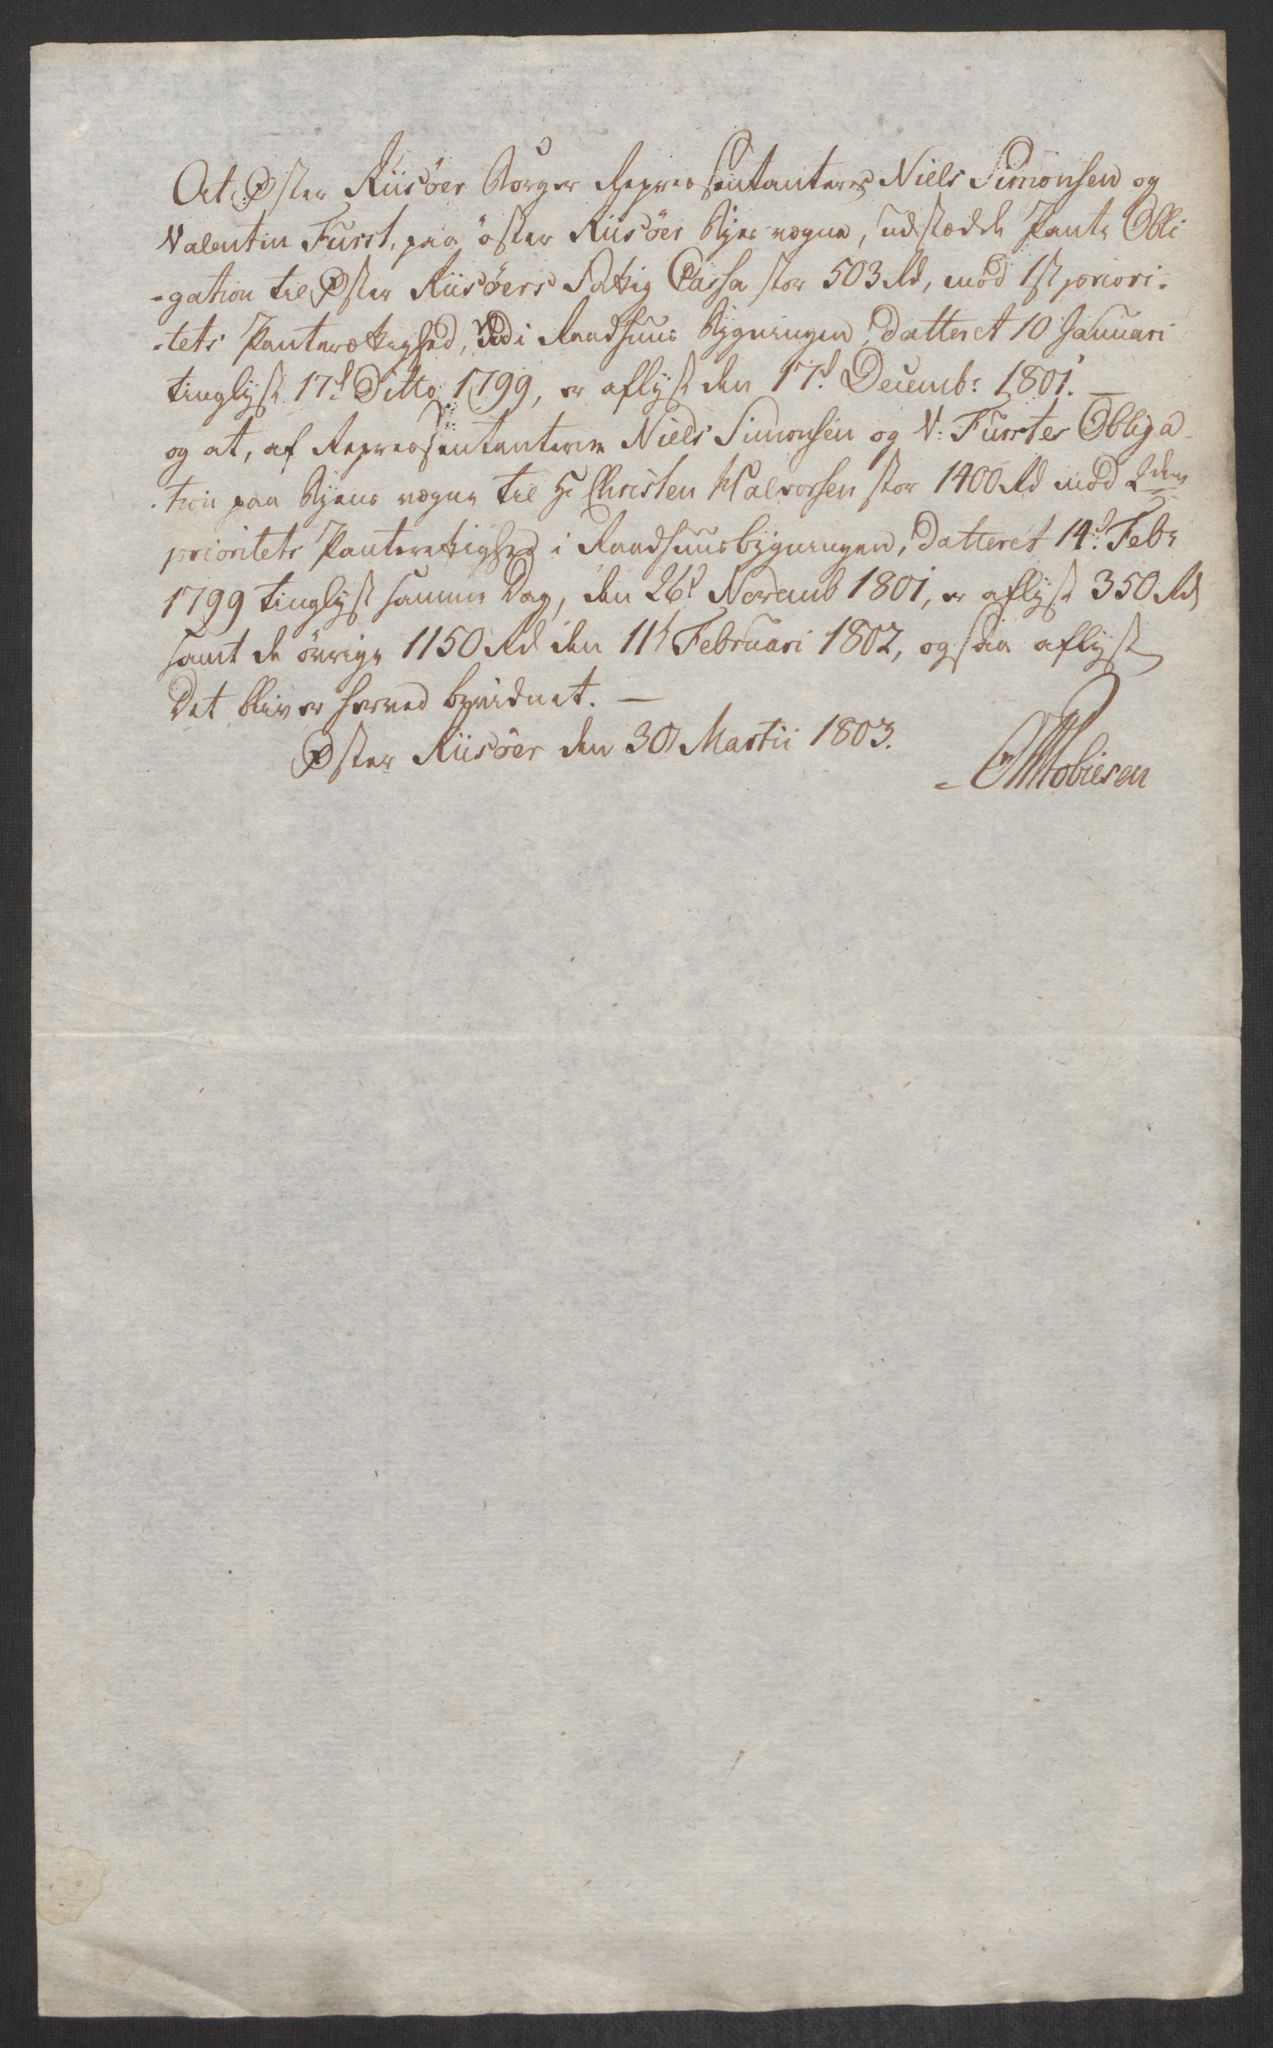 At Øster Riisöer Borger Repræsentantere Niels Simonsen og
Valentin Furst, paa öster Riisöer Byes vegne, udstædde Pante Obli
-gation til Øster Riisöers Fattig Cassa stor 503 Rd, mod 1st priori-
-tets Panterættighed, i Raadhuus Bygningen, datteret 10 Januari
tinglyst 17d Ditto 1799, er aflyst den 17d Decemb: 1801. —
og at, af Repræsentanterne Niels Simonsen og V: Furstes Obliga-
-tion paa Byens vegne til Hr Christen Halvorsen stor 1400 Rd mod 2den
prioritets Panterettighed i Raadhuusbygningen, datteret 14d Febr
1799 tinglyst samme Dag, den 26d Novemb 1801, er aflyst 350 Rd
samt de övrige 1150 Rd den 11t Februari 1802, ogsaa aflyst
Det bliver herved bevidnet. —
Øster Riisöer den 30 Martii 1803.
Tobiesen